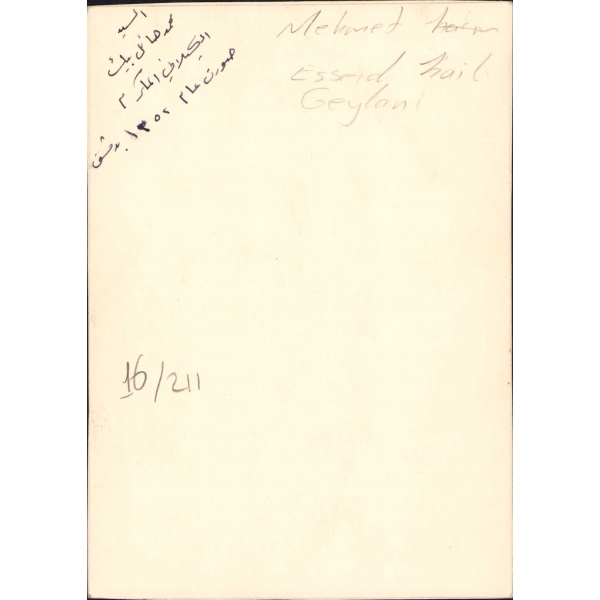 السيد
محمد هائل بيك
الكيلاني المكرم
صورت عام ١٣٥٢ بدمشق
Mehmet
Esseid hail
Geylani
16/211